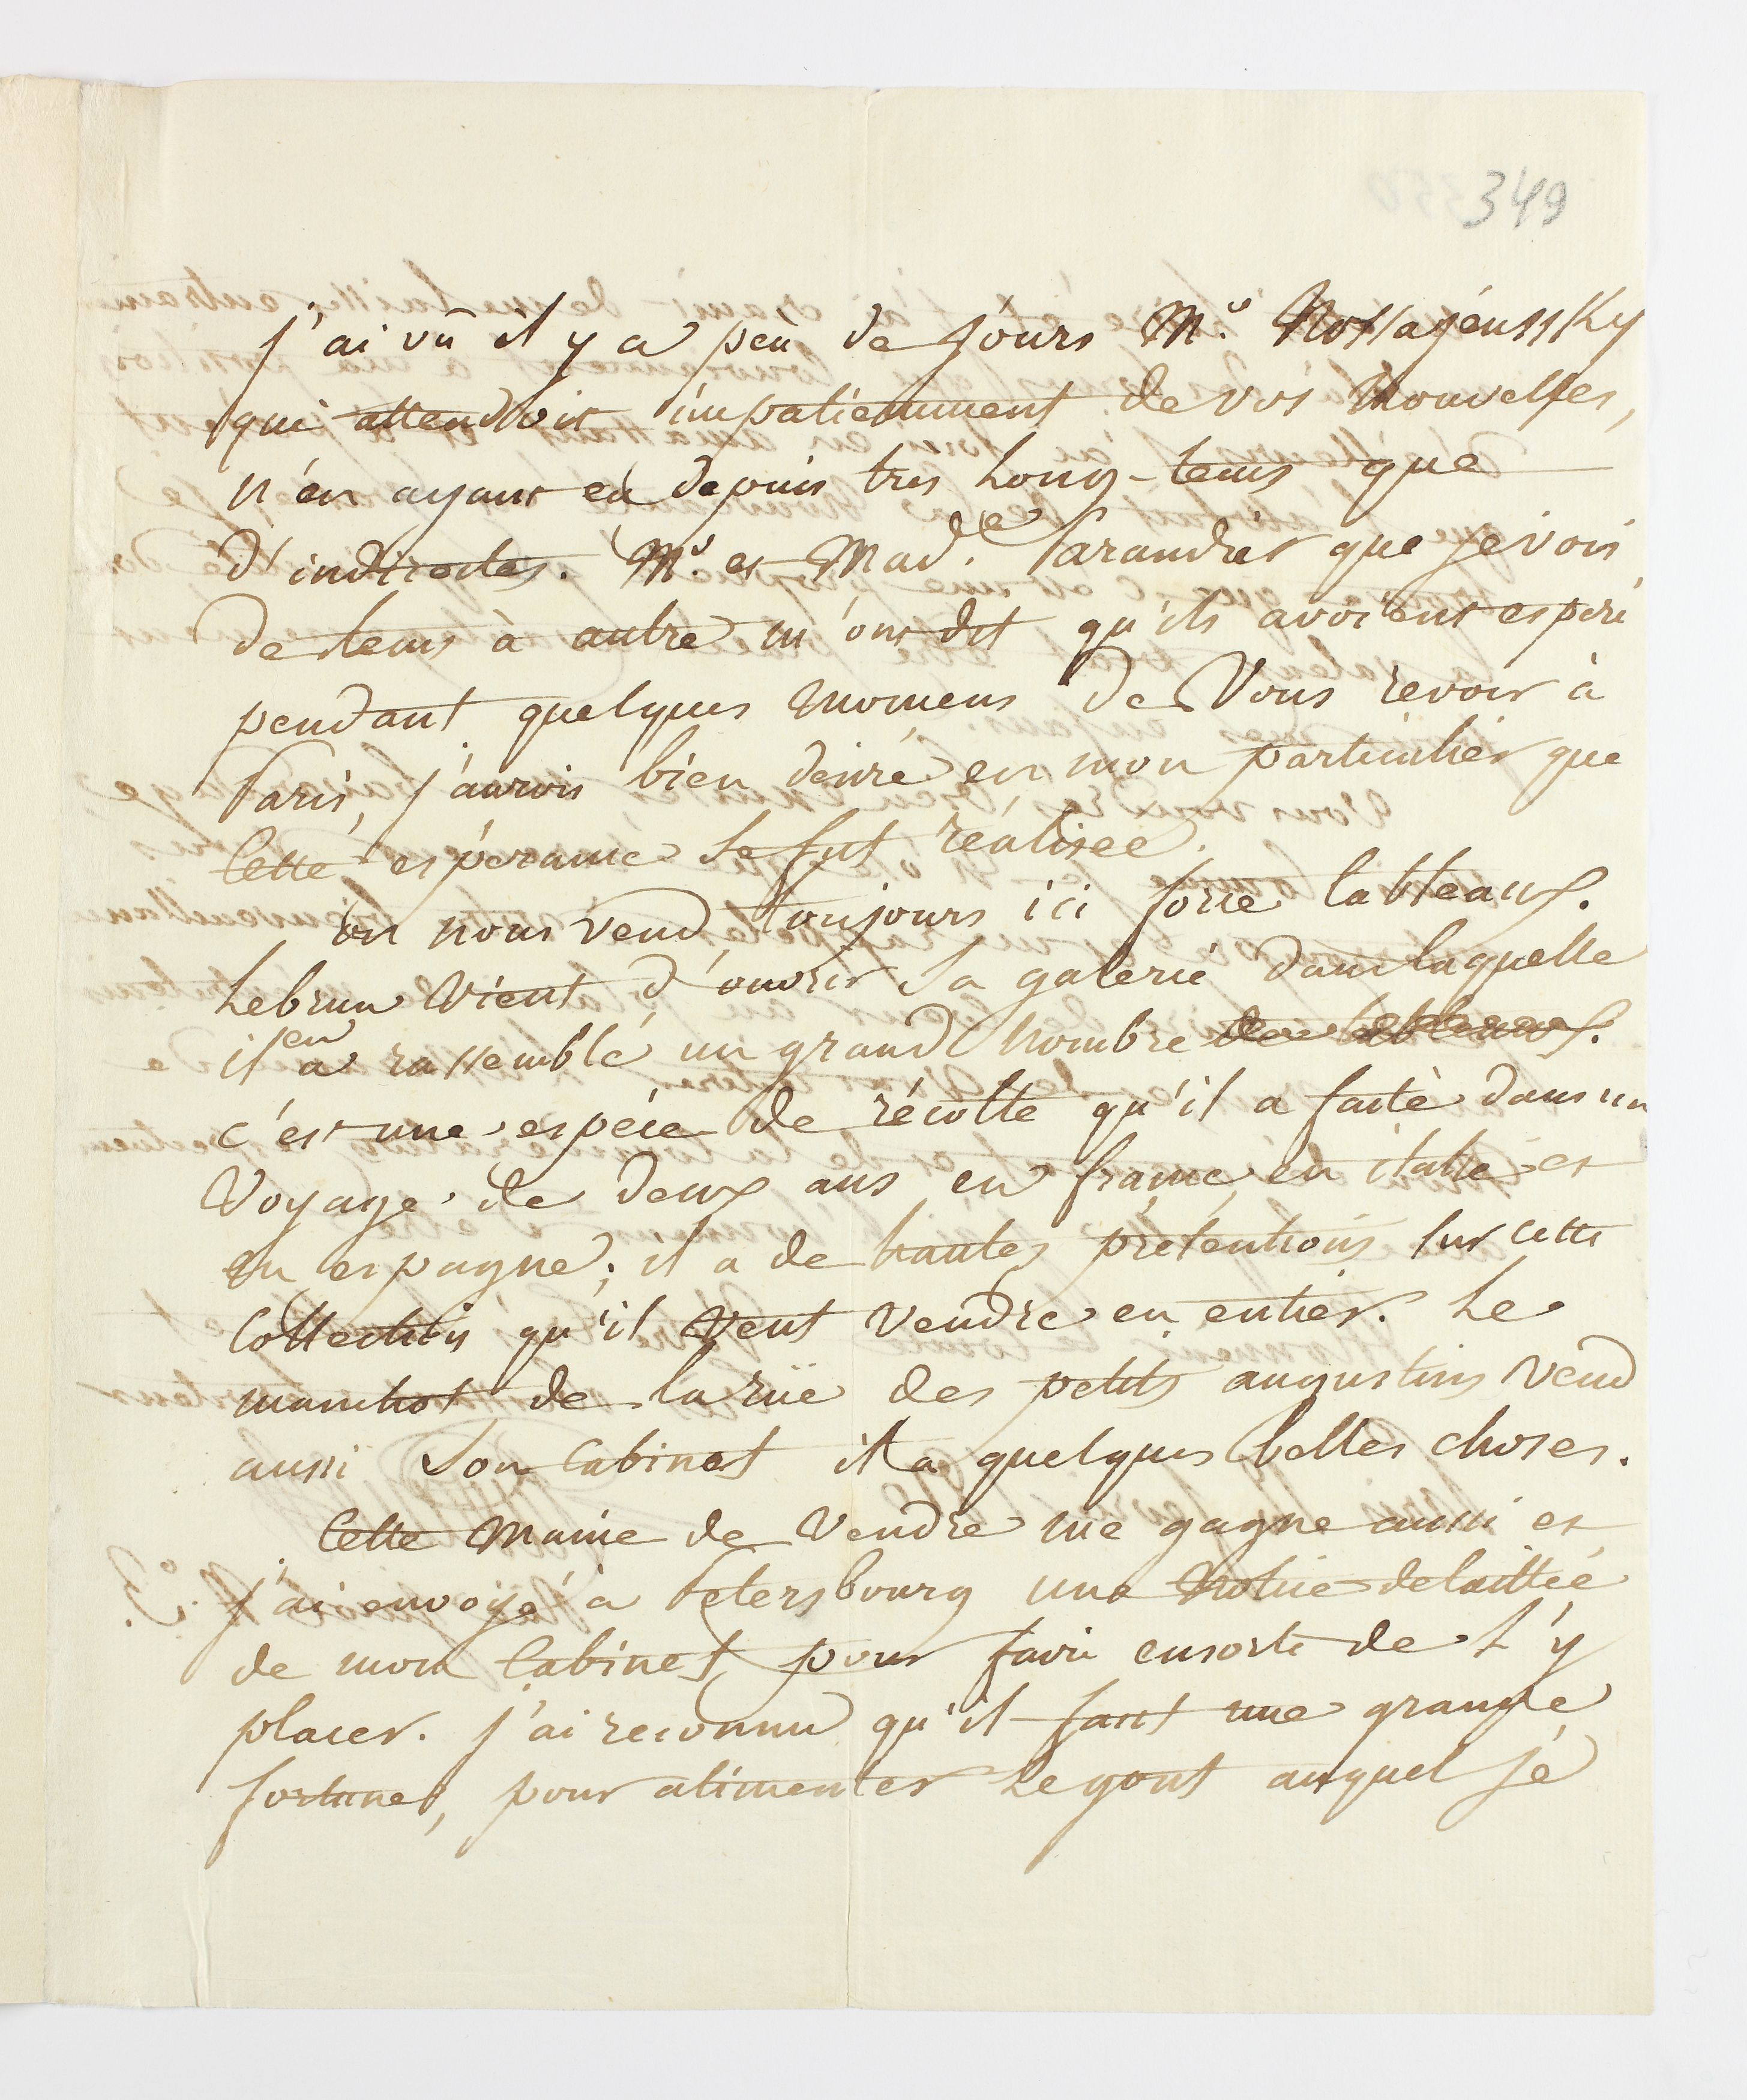 349
j'ai vû il y a peu de jours Mr. Nossajeusski
qui attendoit impatiemment de vos nouvelles,
n'en ayant eû depuis tres long-tems que
d'indirectes. Mr. et Made. Tarandier que je vois
de tems à autre m'ont dit qu'ils avoient esperé
pendant quelques momens de Vous revoir à
Paris, j'aurois bien desiré en mon particulier que
cette esperance se fut réalisée.
on nous vend toujours ici force tableaux.
Lebrun vient d'ouvrir sa galerie dans laquelle
il en a rassemblé un grand nombre de tableaux.
c'est une espéce de récolte qu'il a faite dans un
Voyage de deux ans en france, en italie et
en espagne; il a de hautes prétentions sur cette
Collection qu'il veut vendre en entier. Le
manchot de la rüe des petits augustins vend
aussi son Cabinet il a quelques belles choses.
Cette manie de vendre me gagne aussi et
j'ai envoyé à Petersbourg une notice detaillée
de mon Cabinet pour faire ensorte de l'y
placer. j'ai reconnu qu'il faut une grande
fortune, pour alimenter le gout auquel je